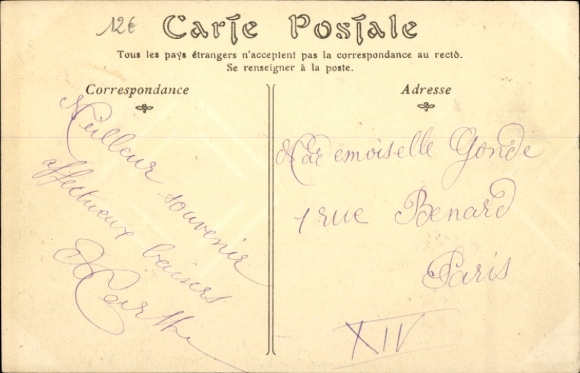 12€
Carte Postale
Tous les pays étrangers n'acceptent pas la correspondance au recto.
Se renseigner à la poste.
Correspondance
Meilleur souvenir
affectueux baisers
Marthe
Adresse
Mademoiselle Gonde
1 rue Benard
Paris
XIV